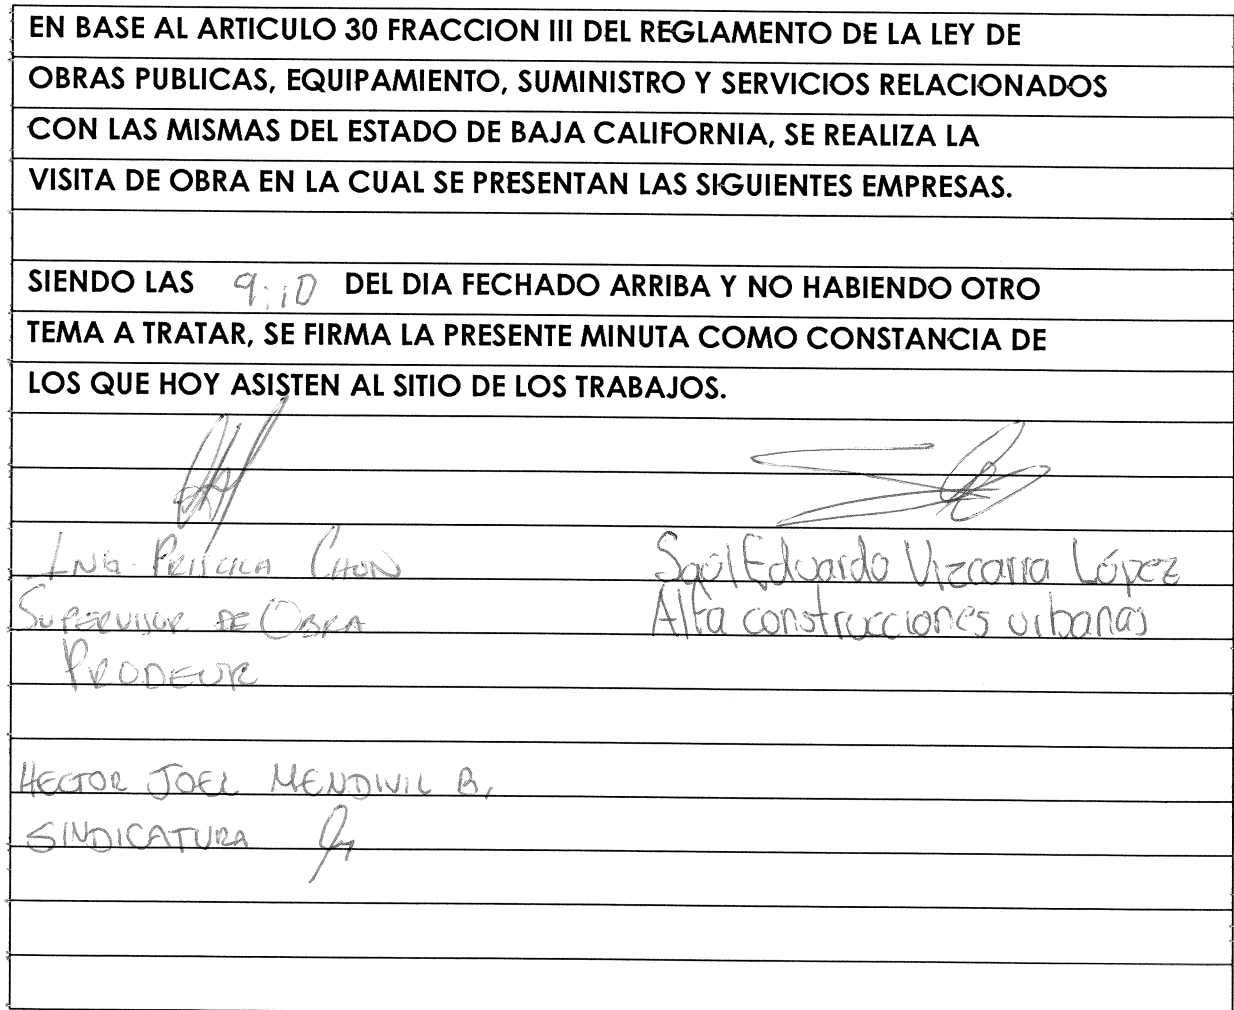 EN BASE AL ARTICULO 30 FRACCION III DEL REGLAMENTO DE LA LEY DE
OBRAS PUBLICAS, EQUIPAMIENTO, SUMINISTRO Y SERVICIOS RELACIONADOS
CON LAS MISMAS DEL ESTADO DE BAJA CALIFORNIA, SE REALIZA LA
VISITA DE OBRA EN LA CUAL SE PRESENTAN LAS SIGUIENTES EMPRESAS.
SIENDO LAS 9:10 DEL DIA FECHADO ARRIBA Y NO HABIENDO OTRO
TEMA A TRATAR, SE FIRMA LA PRESENTE MINUTA COMO CONSTANCIA DE
LOS QUE HOY ASISTEN AL SITIO DE LOS TRABAJOS.
ING. PRISCILA CHON
SUPERVISOR DE OBRA
PRODEUR
Saúl Eduardo Vizcarra López
Alfa construcciones urbanas
HECTOR JOEL MENDIVIL B.
SINDICATURA